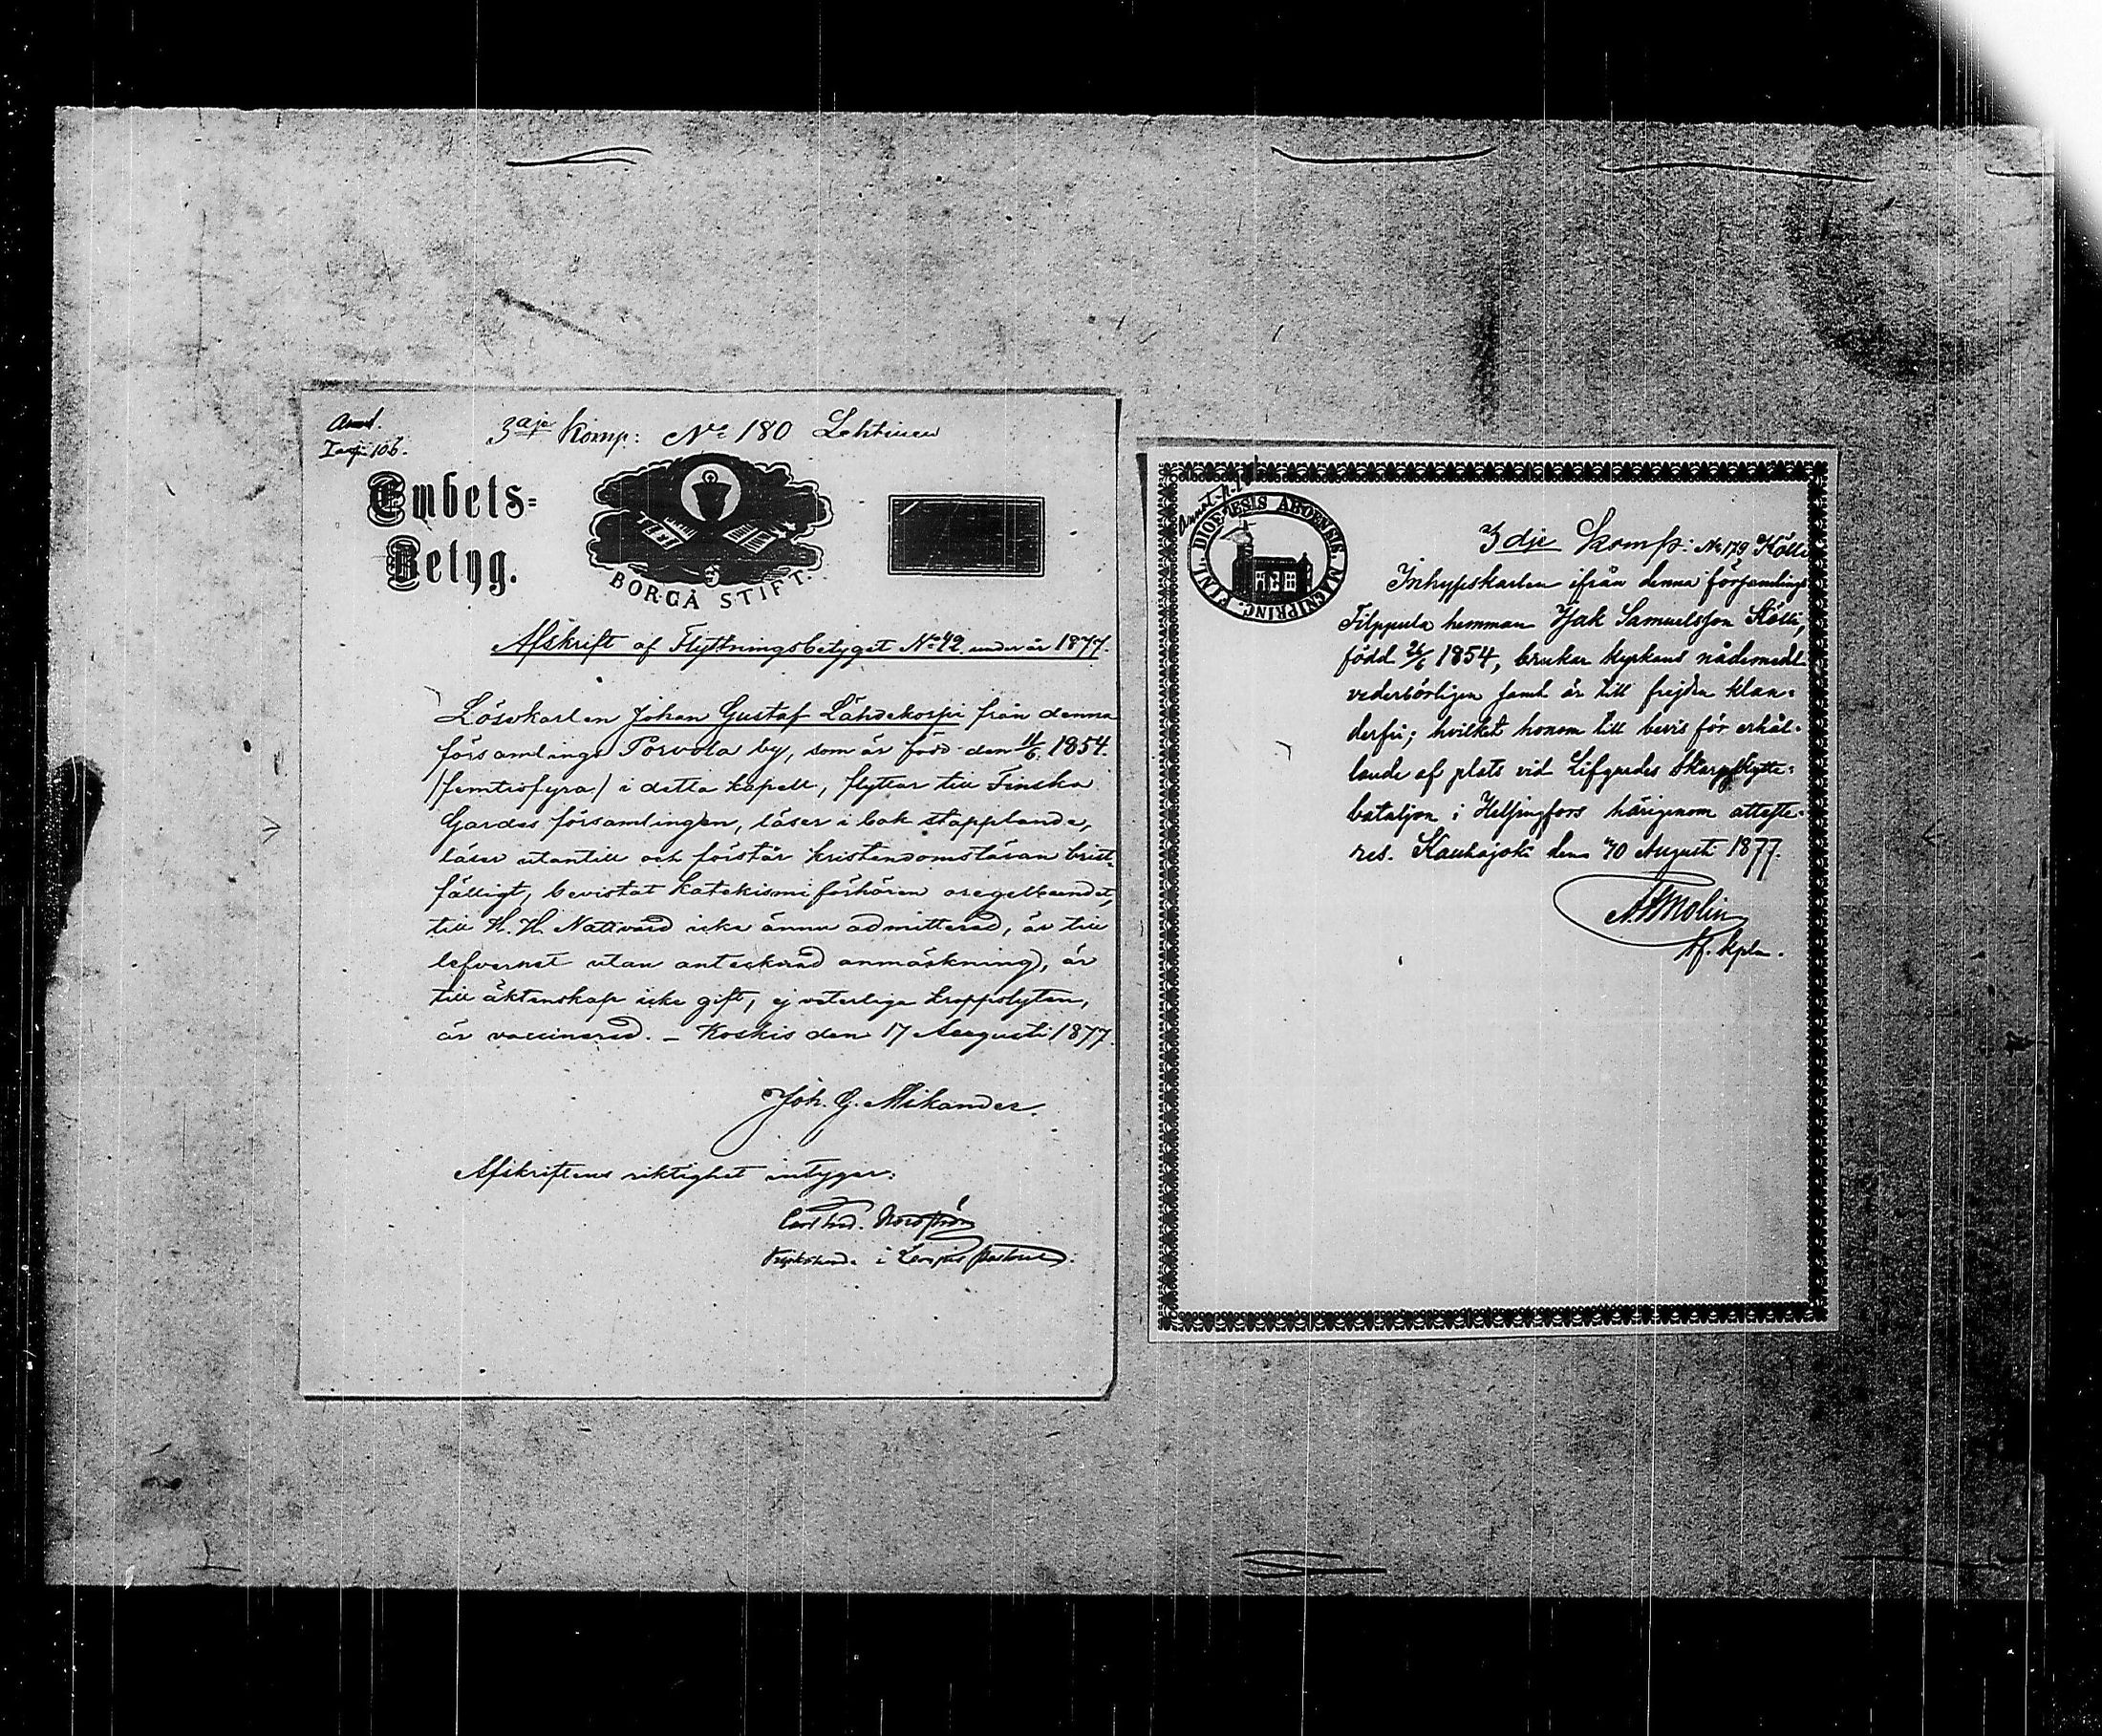 3dje Komp: No 180 Lehtinen
Embets-
Betyg.
BORGÅ STIFT.
Afskrift af Flyttningsbetyget No 42 under år 1877.
Lösekarlen Johan Gustaf Lähdekorpi från denna
församlings Porvola by, som är född den 11/6 1854.
(femtiofyra) i detta kapell, flyttar till Finska
Gardes församlingen, läser i bok stapplande,
läser utantill och förstår kristendomsläran brist-
fälligt, bevistat katekismiförhören oregelbundet,
till H. H. Nattvard icke ännu admitterad, är till
lefvernet utan antecknad anmärkning, är
till äktenskap icke gift, ej veterliga kroppslyten,
är vaccinerad. – Koskis den 17 Augusti 1877.
Joh. G. Mikander.
Afskriftens riktighet intygar:
Nordström
i pastorat.
DIOECESIS ABOENSIS. MAGNIPRINC. FINL.
3dje Komp: No 179 Kölli
Inhyseskarlen ifrån denna församlings
Filppula hemman Isak Samuelsson Kölli,
född 26/6 1854, brukar kyrkans nådemedl
vederbörligen samt är till frejden klan-
derfri; hvilket honom till bevis för erhål-
lande af plats vid Lifgardes Skarpskytte-
bataljon i Helsingfors härigenom atteste-
res. Kauhajoki den 30 August 1877.
Molin